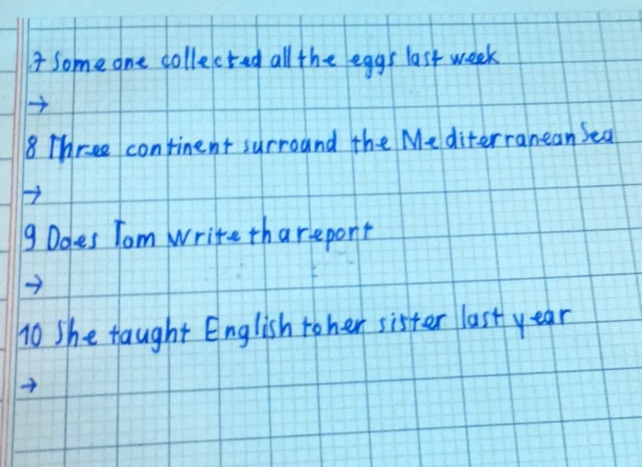 7 Some one collected all the eggs last week
→
8 Three continent surround the Mediterranean Sea
→
9 Does Tom write tha report
→
10 She taught English to her sister last year
→